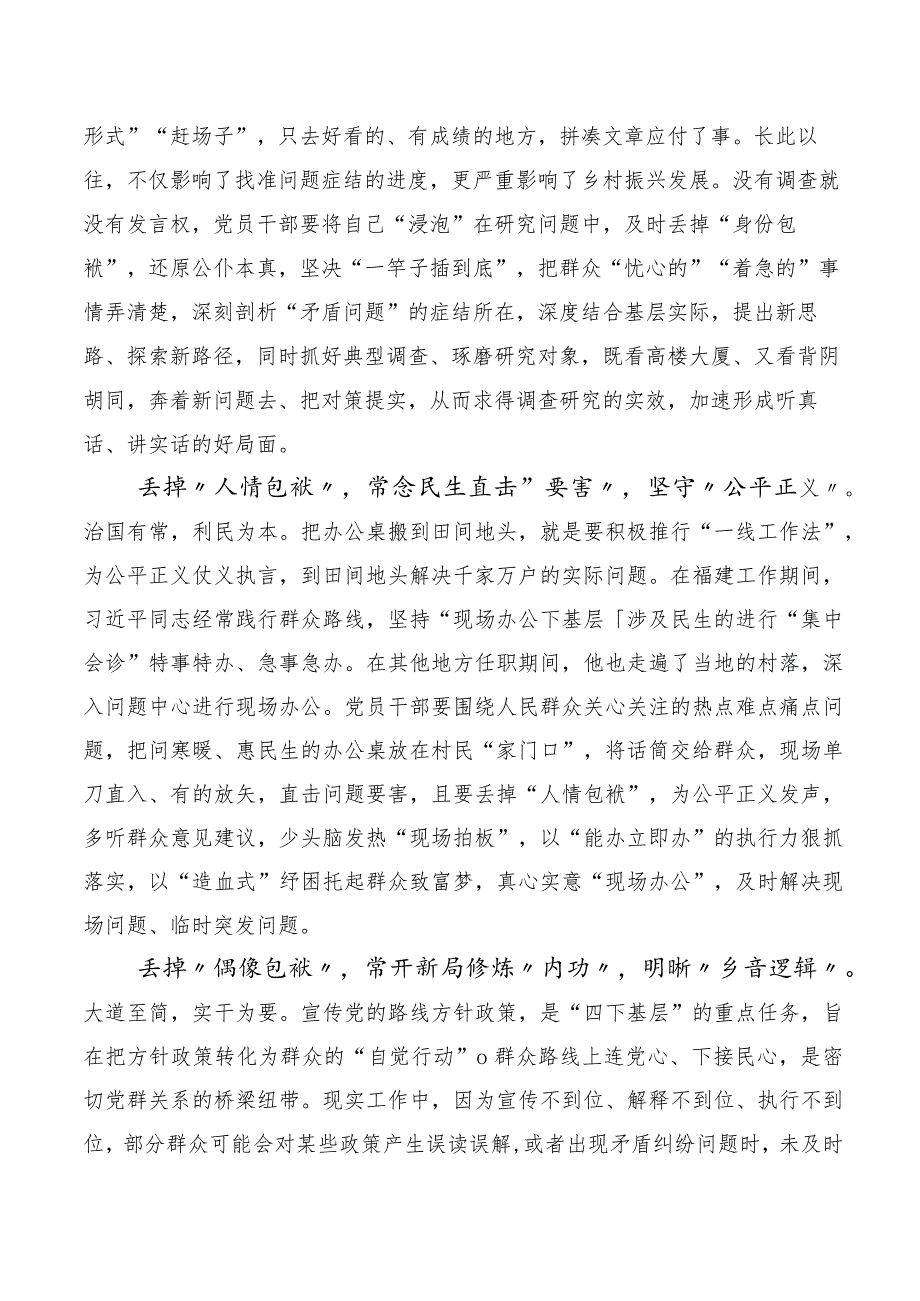 形式”“赶场子”，只去好看的、有成绩的地方，拼凑文章应付了事。长此以
往，不仅影响了找准问题症结的进度，更严重影响了乡村振兴发展。没有调查就
没有发言权，党员干部要将自己“浸泡”在研究问题中，及时丢掉“身份包
袱”，还原公仆本真，坚决“一竿子插到底”，把群众“忧心的”“着急的”事
情弄清楚，深刻剖析“矛盾问题”的症结所在，深度结合基层实际，提出新思
路、探索新路径，同时抓好典型调查、琢磨研究对象，既看高楼大厦、又看背阴
胡同，奔着新问题去、把对策提实，从而求得调查研究的实效，加速形成听真
话、讲实话的好局面。
丢掉〃人情包袱〃，常念民生直击”要害〃，坚守〃公平正义〃。
治国有常，利民为本。把办公桌搬到田间地头，就是要积极推行“一线工作法”，
为公平正义仗义执言，到田间地头解决千家万户的实际问题。在福建工作期间，
习近平同志经常践行群众路线，坚持“现场办公下基层「涉及民生的进行“集中
会诊”特事特办、急事急办。在其他地方任职期间，他也走遍了当地的村落，深
入问题中心进行现场办公。党员干部要围绕人民群众关心关注的热点难点痛点问
题，把问寒暖、惠民生的办公桌放在村民“家门口”，将话筒交给群众，现场单
刀直入、有的放矢，直击问题要害，且要丢掉“人情包袱”，为公平正义发声，
多听群众意见建议，少头脑发热“现场拍板”，以“能办立即办”的执行力狠抓
落实，以“造血式”纾困托起群众致富梦，真心实意“现场办公”，及时解决现
场问题、临时突发问题。
丢掉〃偶像包袱〃，常开新局修炼〃内功〃，明晰〃乡音逻辑〃。
大道至简，实干为要。宣传党的路线方针政策，是“四下基层”的重点任务，旨
在把方针政策转化为群众的“自觉行动”o 群众路线上连党心、下接民心，是密
切党群关系的桥梁纽带。现实工作中，因为宣传不到位、解释不到位、执行不到
位，部分群众可能会对某些政策产生误读误解,或者出现矛盾纠纷问题时，未及时